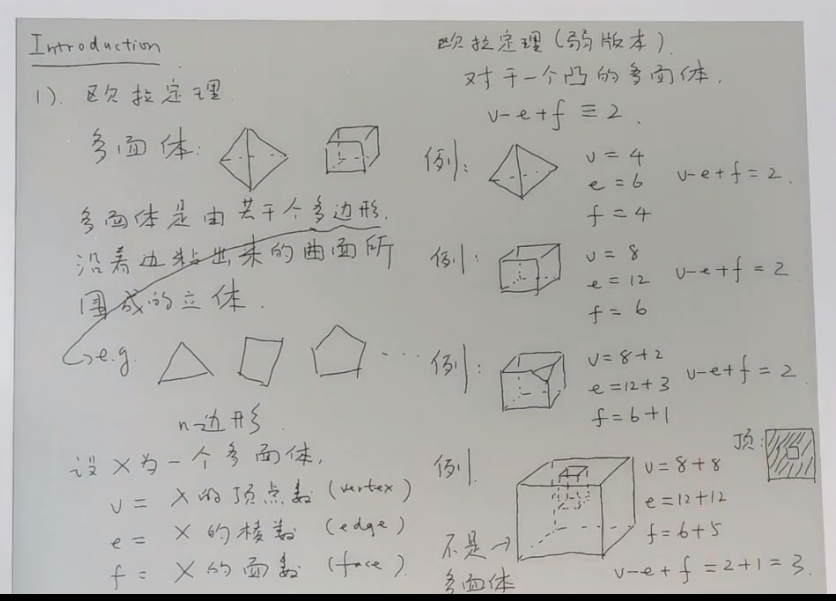 Introduction
1). 欧拉定理
多面体:
多面体是由若干个多边形.
沿着边粘出来的曲面所
围成的立体.
e.g. ...
n-边形.
设 X 为一个多面体,
v = X 的顶点数 (vertex)
e = X 的棱数 (edge)
f = X 的面数 (face)
欧拉定理 (弱版本).
对于一个凸的多面体.
v-e+f ≡ 2.
例: v = 4
e = 6 v-e+f = 2.
f = 4
例: v = 8
e = 12 v-e+f = 2
f = 6
例: v = 8+2
e = 12+3 v-e+f = 2
f = 6+1
顶:
例. v = 8+8
e = 12+12
f = 6+5
不是→
多面体
v-e+f = 2+1 = 3.